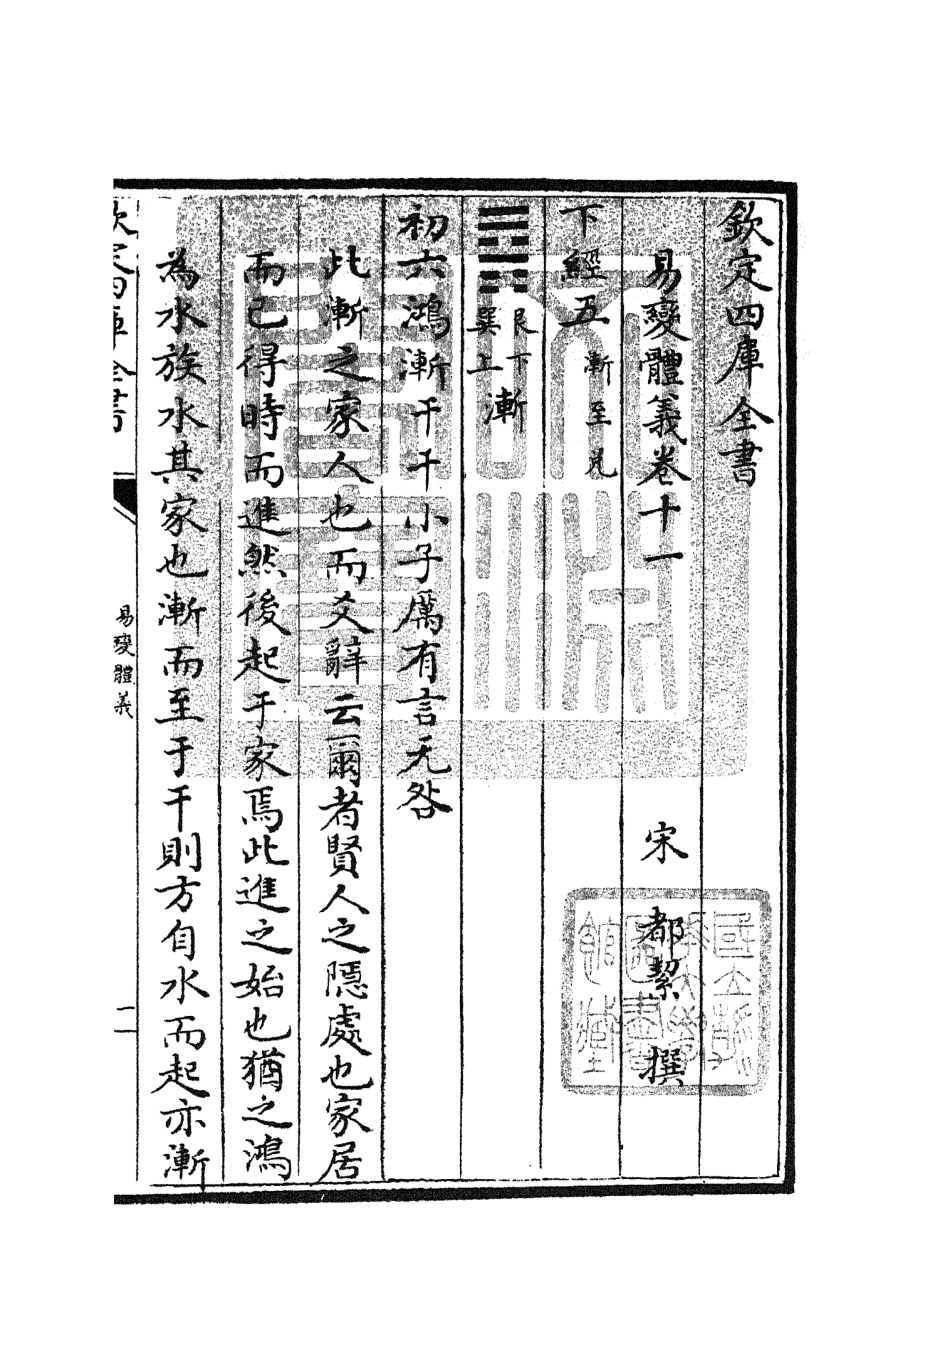 欽定四庫全書
易變體義卷十一
宋 都絜 撰
下經五漸至兌
䷴艮下巽上漸
初六鴻漸于干小子厲有言无咎
此漸之家人也而爻辭云爾者賢人之隱處也家居
而已得時而進然後起于家焉此進之始也猶之鴻
為水族水其家也漸而至于干則方自水而起亦漸
欽定四庫全書
易變體義
二